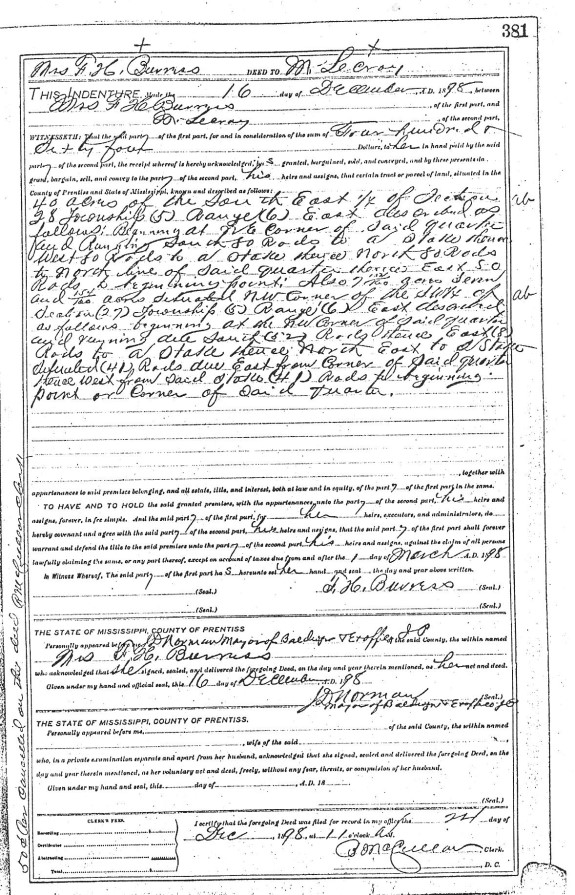 381
Mrs F. H. Burress DEED TO M. LeCroy
THIS INDENTURE, Made the 16 day of December A.D. 1898, between
Mrs F H Burress, of the first part, and
M. LeCroy, of the second part,
WITNESSETH: That the said party of the first part, for and in consideration of the sum of Four hundred &
Sixty four Dollars, to her in hand paid by the said
party of the second part, the receipt whereof is hereby acknowledged, has granted, bargained, sold, and conveyed, and by these presents do
grant, bargain, sell, and convey to the party of the second part, his heirs and assigns, that certain tract or parcel of land, situated in the
County of Prentiss and State of Mississippi, known and described as follows:
40 acres of the South East 1/4 of Section
28 Township (5) Range (6) East described as
follows: Beginning at N E Corner of Said quarter
and Running South 80 Rods to a Stake thence
West 80 Rods to a Stake thence North 80 Rods
to North line of Said quarter thence East 80
Rods to beginning point; Also 7
and acres Situated NW Corner of the S W 1/4 of
Section (27) Township (5) Range (6) East described
as follows beginning at the NW Corner of Said quarter
and running due South (52) Rods thence East (8)
Rods to a Stake thence North East to a Stake
situated (41) Rods due East from Corner of Said quarter
thence West from Said Stake (41) Rods to beginning
point or Corner of Said quarter.
, together with
appurtenances to said premises belonging, and all estate, title, and interest, both at law and in equity, of the party of the first part in the same.
TO HAVE AND TO HOLD the said granted premises, with the appurtenances, unto the party of the second part, his heirs and
assigns, forever, in fee simple. And the said party of the first part, for her heirs, executors, and administrators, do
hereby covenant and agree with the said party of the second part, his heirs and assigns, that the said party of the first part shall forever
warrant and defend the title to the said premises unto the party of the second part, his heirs and assigns, against the claim of all persons
lawfully claiming the same, or any part thereof, except on account of taxes due from and after the 1 day of March A.D. 1898
In Witness Whereof, The said party of the first part has hereunto set her hand and seal the day and year above written.
(Seal.) F. H. Burress (Seal.)
(Seal.) (Seal.)
THE STATE OF MISSISSIPPI, COUNTY OF PRENTISS
Personally appeared before me, J D Norman Mayor of Baldwyn & Ex officio J P of the said County, the within named
Mrs F. H. Burress
who acknowledged that She signed, sealed, and delivered the foregoing Deed, on the day and year therein mentioned, as her act and deed.
Given under my hand and official seal, this 16 day of December A.D. 1898
J D Norman (Seal.)
Mayor of Baldwyn & Ex officio J P
THE STATE OF MISSISSIPPI, COUNTY OF PRENTISS.
Personally appeared before me, of the said County, the within named
, wife of the said
who, in a private examination separate and apart from her husband, acknowledged that she signed, sealed and delivered the foregoing Deed, on the
day and year therein mentioned, as her voluntary act and deed, freely, without any fear, threats, or compulsion of her husband.
Given under my hand and seal, this day of , A.D. 18
(Seal.)
CLERK'S FEES.
Recording $
Certificate
Abstracting
Total $
I certify that the foregoing Deed was filed for record in my office the 24 day of
Dec 1898, at 11 o'clock A.
B McQueen Clerk.
D. C.
50 ct Rev cancelled on this deed B McQueen clerk
ab
ab